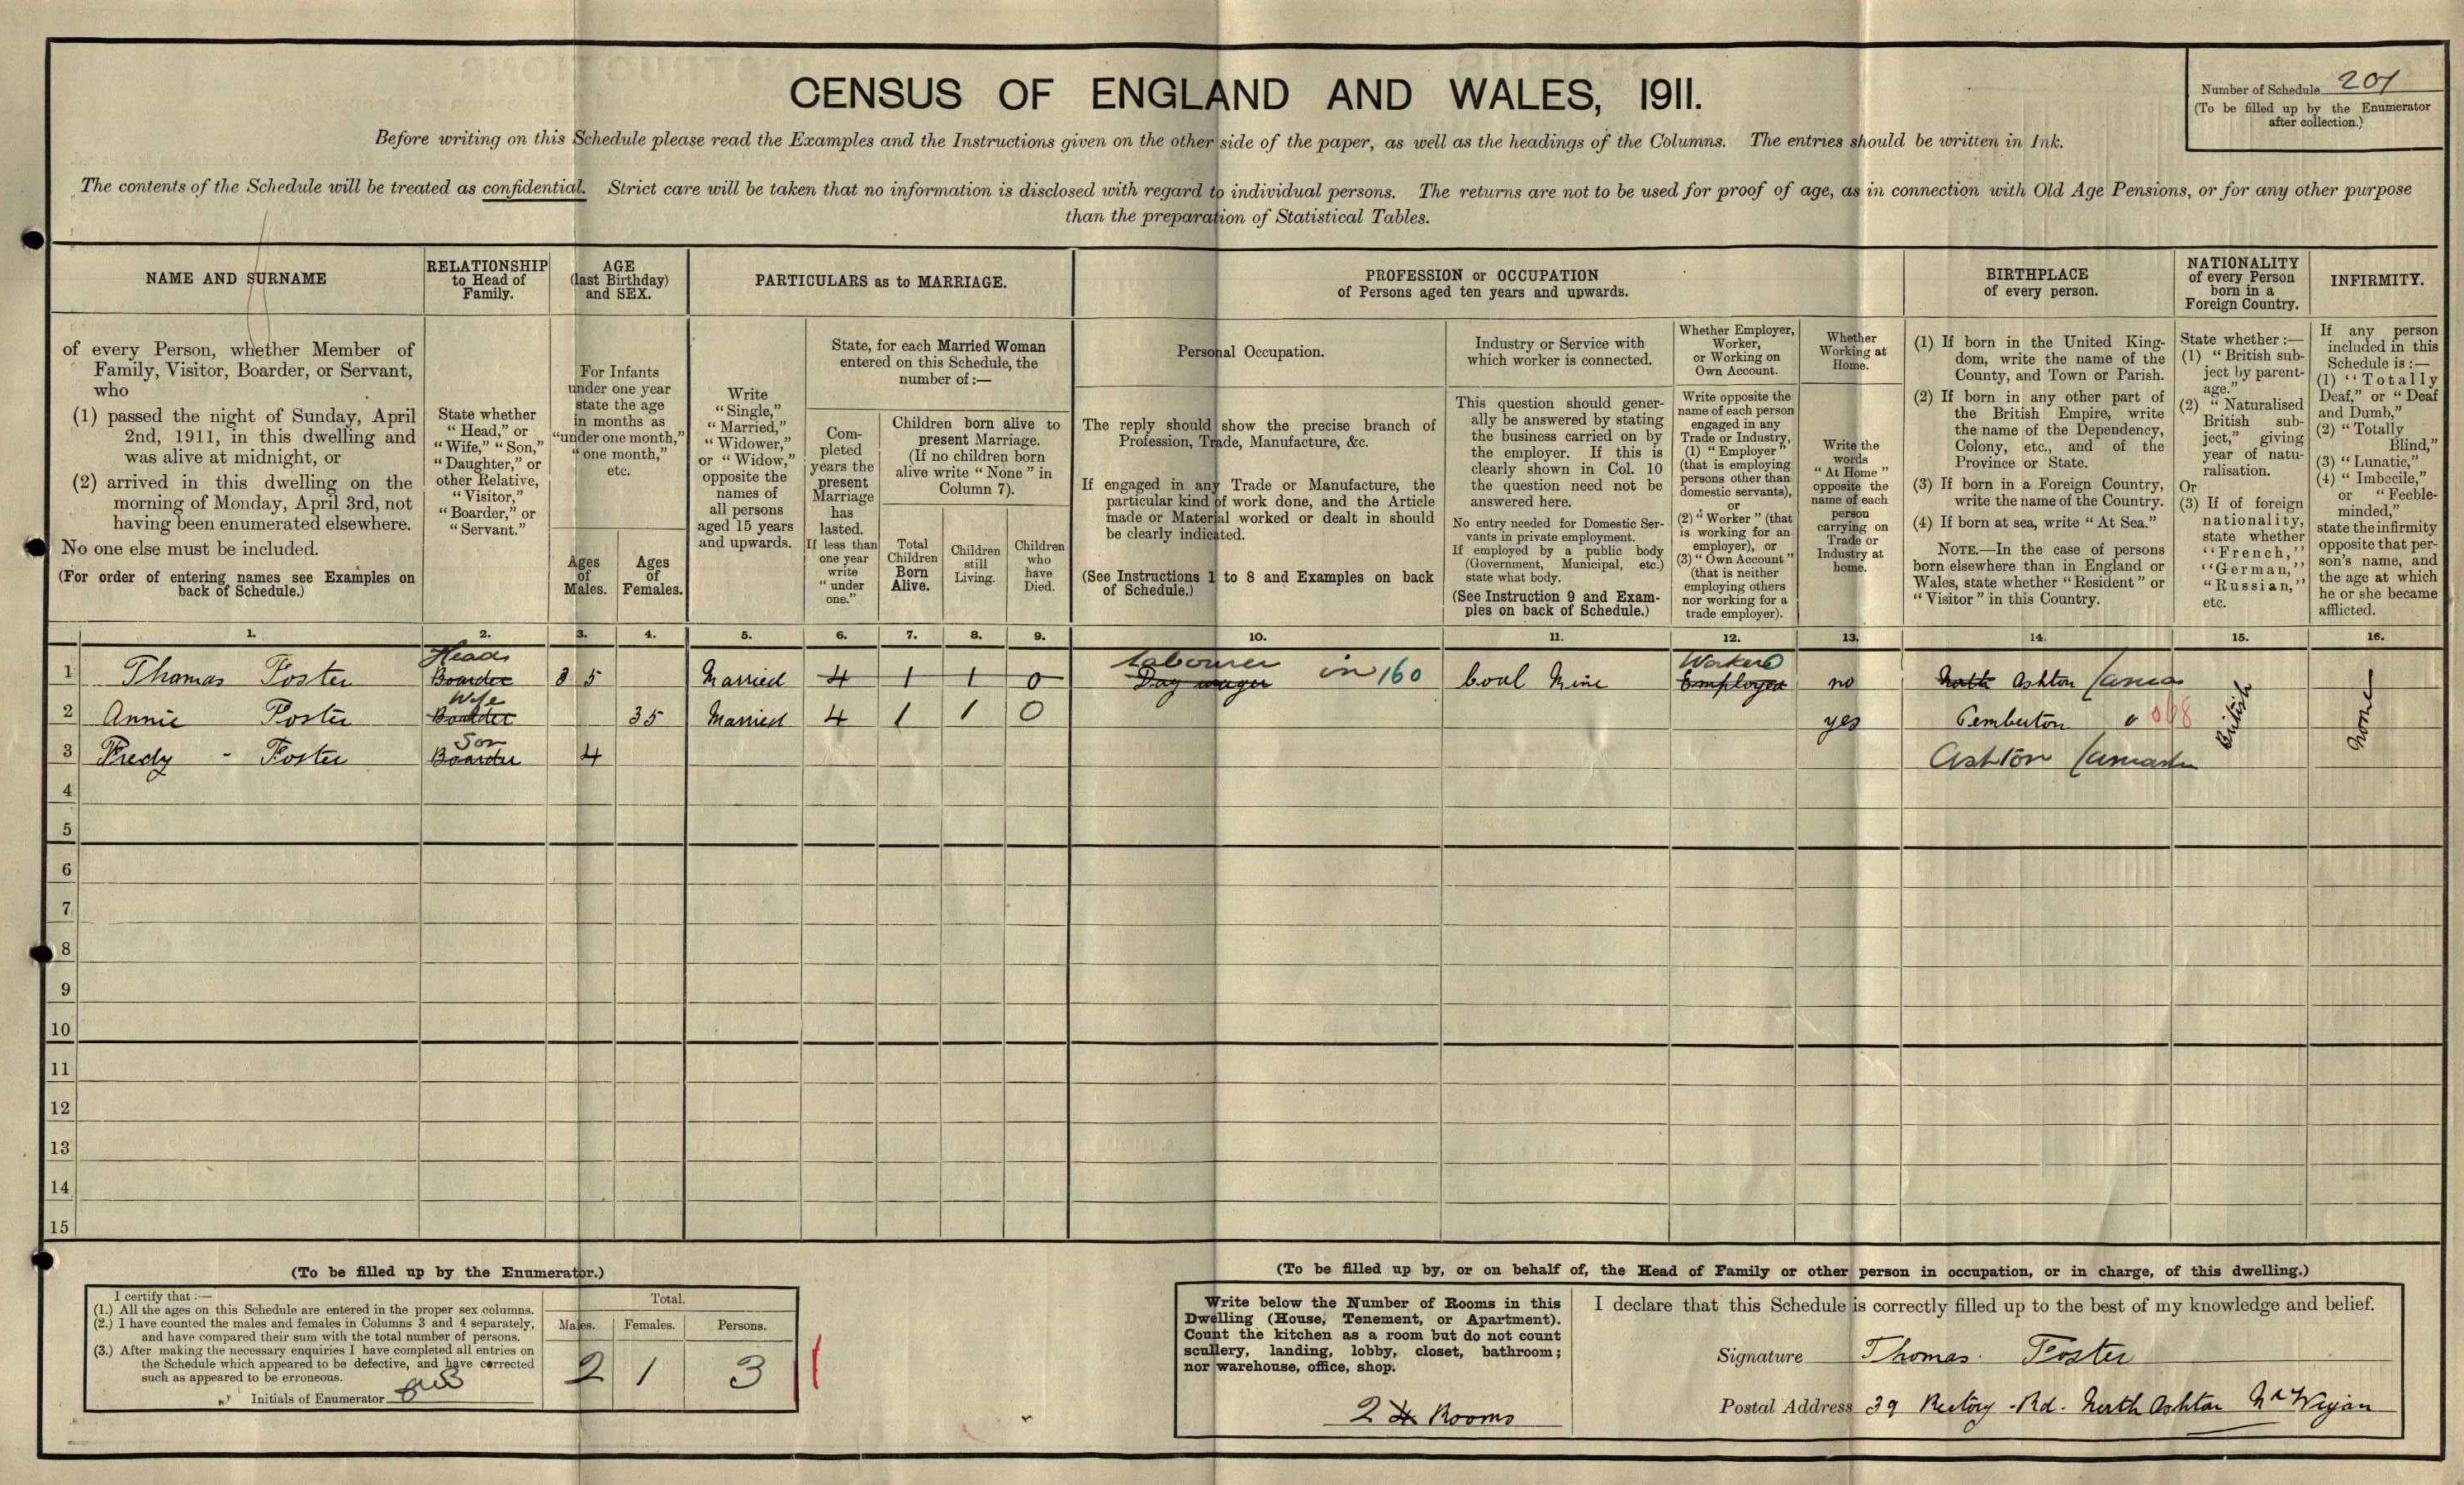 CENSUS OF ENGLAND AND WALES, 1911.
Number of Schedule 201
(To be filled up by the Enumerator
after collection.)
Before writing on this Schedule please read the Examples and the Instructions given on the other side of the paper, as well as the headings of the Columns. The entries should be written in Ink.
The contents of the Schedule will be treated as confidential. Strict care will be taken that no information is disclosed with regard to individual persons. The returns are not to be used for proof of age, as in connection with Old Age Pensions, or for any other purpose
than the preparation of Statistical Tables.
NAME AND SURNAME
of every Person, whether Member of
Family, Visitor, Boarder, or Servant,
who
(1) passed the night of Sunday, April
2nd, 1911, in this dwelling and
was alive at midnight, or
(2) arrived in this dwelling on the
morning of Monday, April 3rd, not
having been enumerated elsewhere.
No one else must be included.
(For order of entering names see Examples on
back of Schedule.)
RELATIONSHIP
to Head of
Family.
State whether
"Head," or
"Wife," "Son,"
"Daughter," or
other Relative,
"Visitor,"
"Boarder," or
"Servant."
AGE
(last Birthday)
and SEX.
For Infants
under one year
state the age
in months as
"under one month,"
"one month,"
etc.
Ages
of
Males.
Ages
of
Females.
PARTICULARS as to MARRIAGE.
Write
"Single,"
"Married,"
"Widower,"
or "Widow,"
opposite the
names of
all persons
aged 15 years
and upwards.
State, for each Married Woman
entered on this Schedule, the
number of:—
Com-
pleted
years the
present
Marriage
has
lasted.
If less than
one year
write
"under
one."
Children born alive to
present Marriage.
(If no children born
alive write "None" in
Column 7).
Total
Children
Born
Alive.
Children
still
Living.
Children
who
have
Died.
PROFESSION or OCCUPATION
of Persons aged ten years and upwards.
Personal Occupation.
The reply should show the precise branch of
Profession, Trade, Manufacture, &c.
If engaged in any Trade or Manufacture, the
particular kind of work done, and the Article
made or Material worked or dealt in should
be clearly indicated.
(See Instructions 1 to 8 and Examples on back
of Schedule.)
Industry or Service with
which worker is connected.
This question should gener-
ally be answered by stating
the business carried on by
the employer. If this is
clearly shown in Col. 10
the question need not be
answered here.
No entry needed for Domestic Ser-
vants in private employment.
If employed by a public body
(Government, Municipal, etc.)
state what body.
(See Instruction 9 and Exam-
ples on back of Schedule.)
Whether Employer,
Worker,
or Working on
Own Account.
Write opposite the
name of each person
engaged in any
Trade or Industry,
(1) "Employer"
(that is employing
persons other than
domestic servants),
or
(2) "Worker" (that
is working for an
employer), or
(3) "Own Account"
(that is neither
employing others
nor working for a
trade employer).
Whether
Working at
Home.
Write the
words
"At Home"
opposite the
name of each
person
carrying on
Trade or
Industry at
home.
BIRTHPLACE
of every person.
(1) If born in the United King-
dom, write the name of the
County, and Town or Parish.
(2) If born in any other part of
the British Empire, write
the name of the Dependency,
Colony, etc., and of the
Province or State.
(3) If born in a Foreign Country,
write the name of the Country.
(4) If born at sea, write "At Sea."
NOTE.—In the case of persons
born elsewhere than in England or
Wales, state whether "Resident" or
"Visitor" in this Country.
NATIONALITY
of every Person
born in a
Foreign Country.
State whether:—
(1) "British sub-
ject by parent-
age."
(2) "Naturalised
British sub-
ject," giving
year of natu-
ralisation.
Or
(3) If of foreign
nationality,
state whether
"French,"
"German,"
"Russian,"
etc.
INFIRMITY.
If any person
included in this
Schedule is:—
(1) "Totally
Deaf," or "Deaf
and Dumb,"
(2) "Totally
Blind,"
(3) "Lunatic,"
(4) "Imbecile,"
or "Feeble-
minded,"
state the infirmity
opposite that per-
son's name, and
the age at which
he or she became
afflicted.
1. 2. 3. 4. 5. 6. 7. 8. 9. 10. 11. 12. 13. 14. 15. 16.
Head Labourer in 160 Worker
1 Thomas Foster Boarder 35 Married 4 1 1 0 Day wager Coal Mine Employed no North Ashton Lancs
Wife
2 Annie Foster Boarder 35 Married 4 1 1 0 yes Pemberton 068 British None
Son
3 Fredy - Foster Boarder 4 Ashton
4
5
6
7
8
9
10
11
12
13
14
15
(To be filled up by the Enumerator.)
I certify that:—
(1.) All the ages on this Schedule are entered in the proper sex columns.
(2.) I have counted the males and females in Columns 3 and 4 separately,
and have compared their sum with the total number of persons.
(3.) After making the necessary enquiries I have completed all entries on
the Schedule which appeared to be defective, and have corrected
such as appeared to be erroneous.
Initials of Enumerator
Total.
Males. Females. Persons.
2 1 3
(To be filled up by, or on behalf of, the Head of Family or other person in occupation, or in charge, of this dwelling.)
Write below the Number of Rooms in this
Dwelling (House, Tenement, or Apartment).
Count the kitchen as a room but do not count
scullery, landing, lobby, closet, bathroom;
nor warehouse, office, shop.
2 4 Rooms
I declare that this Schedule is correctly filled up to the best of my knowledge and belief.
Signature Thomas Foster
Postal Address 39 Rectory Rd. North Ashton Nr Wigan